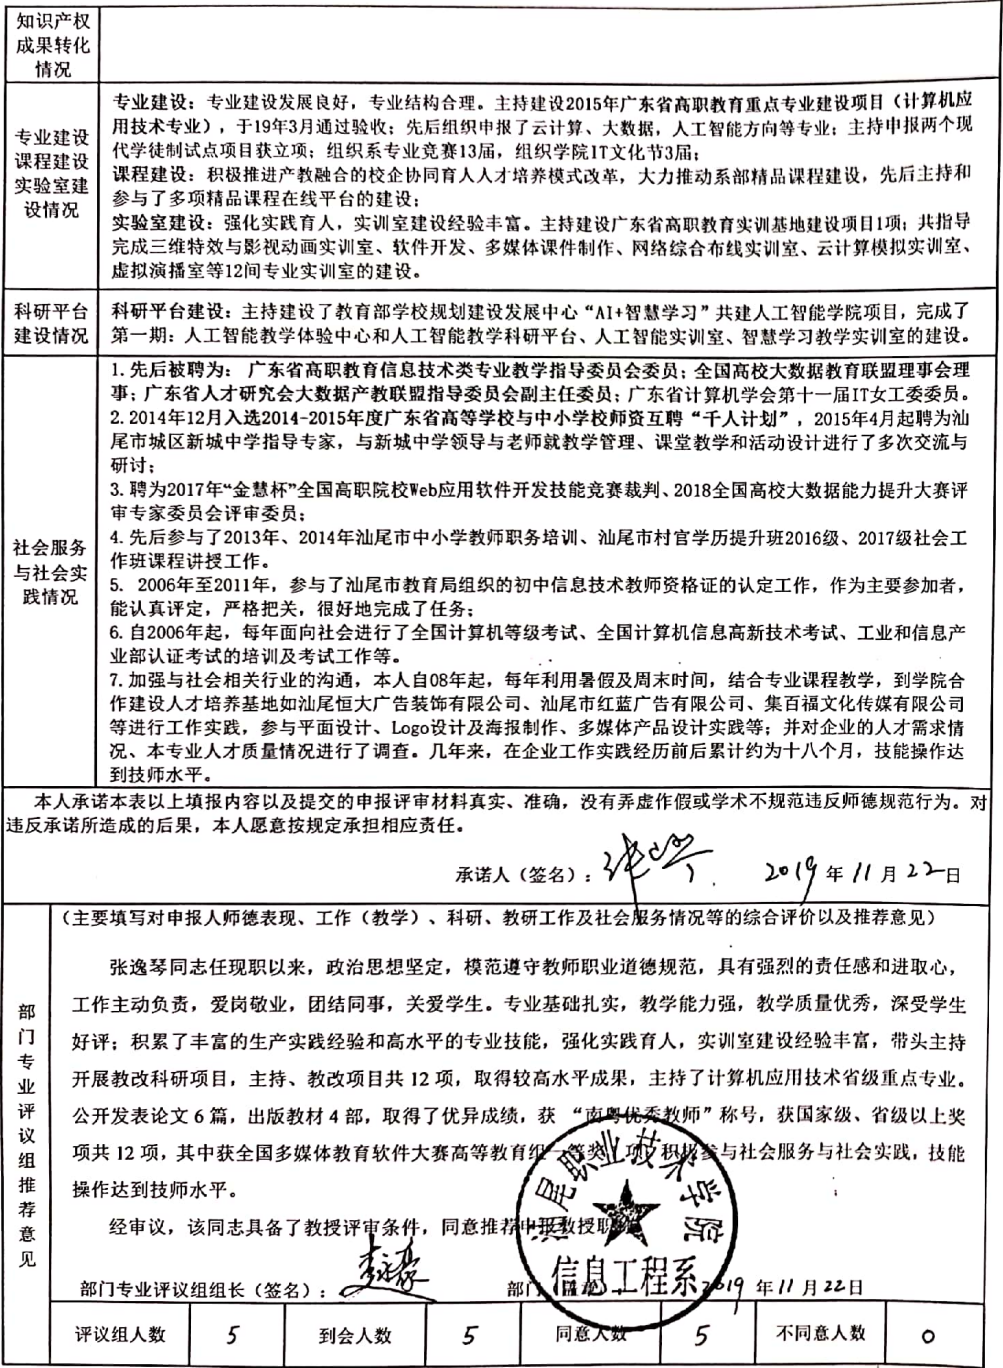 知识产权
成果转化
情况
专业建设
课程建设
实验室建
设情况
专业建设：专业建设发展良好，专业结构合理。主持建设2015年广东省高职教育重点专业建设项目（计算机应
用技术专业），于19年3月通过验收；先后组织申报了云计算、大数据，人工智能方向等专业；主持申报两个现
代学徒制试点项目获立项；组织系专业竞赛13届，组织学院IT文化节3届；
课程建设：积极推进产教融合的校企协同育人人才培养模式改革，大力推动系部精品课程建设，先后主持和
参与了多项精品课程在线平台的建设；
实验室建设：强化实践育人，实训室建设经验丰富。主持建设广东省高职教育实训基地建设项目1项；共指导
完成三维特效与影视动画实训室、软件开发、多媒体课件制作、网络综合布线实训室、云计算模拟实训室、
虚拟演播室等12间专业实训室的建设。
科研平台
建设情况
科研平台建设：主持建设了教育部学校规划建设发展中心“AI+智慧学习”共建人工智能学院项目，完成了
第一期：人工智能教学体验中心和人工智能教学科研平台、人工智能实训室、智慧学习教学实训室的建设。
社会服务
与社会实
践情况
1. 先后被聘为： 广东省高职教育信息技术类专业教学指导委员会委员；全国高校大数据教育联盟理事会理
事；广东省人才研究会大数据产教联盟指导委员会副主任委员；广东省计算机学会第十一届IT女工委委员。
2. 2014年12月入选2014-2015年度广东省高等学校与中小学校师资互聘“千人计划”，2015年4月起聘为汕
尾市城区新城中学指导专家，与新城中学领导与老师就教学管理、课堂教学和活动设计进行了多次交流与
研讨；
3. 聘为2017年“金慧杯”全国高职院校Web应用软件开发技能竞赛裁判、2018全国高校大数据能力提升大赛评
审专家委员会评审委员；
4. 先后参与了2013年、2014年汕尾市中小学教师职务培训、汕尾市村官学历提升班2016级、2017级社会工
作班课程讲授工作。
5. 2006年至2011年，参与了汕尾市教育局组织的初中信息技术教师资格证的认定工作，作为主要参加者，
能认真评定，严格把关，很好地完成了任务；
6. 自2006年起，每年面向社会进行了全国计算机等级考试、全国计算机信息高新技术考试、工业和信息产
业部认证考试的培训及考试工作等。
7. 加强与社会相关行业的沟通，本人自08年起，每年利用暑假及周末时间，结合专业课程教学，到学院合
作建设人才培养基地如汕尾恒大广告装饰有限公司、汕尾市红蓝广告有限公司、集百福文化传媒有限公司
等进行工作实践，参与平面设计、Logo设计及海报制作、多媒体产品设计实践等；并对企业的人才需求情
况、本专业人才质量情况进行了调查。几年来，在企业工作实践经历前后累计约为十八个月，技能操作达
到技师水平。
本人承诺本表以上填报内容以及提交的申报评审材料真实、准确，没有弄虚作假或学术不规范违反师德规范行为。对
违反承诺所造成的后果，本人愿意按规定承担相应责任。
承诺人（签名）： 2019 年 11 月 22 日
部门专业评议组推荐意见
（主要填写对申报人师德表现、工作（教学）、科研、教研工作及社会服务情况等的综合评价以及推荐意见）
张逸琴同志任现职以来，政治思想坚定，模范遵守教师职业道德规范，具有强烈的责任感和进取心，
工作主动负责，爱岗敬业，团结同事，关爱学生。专业基础扎实，教学能力强，教学质量优秀，深受学生
好评；积累了丰富的生产实践经验和高水平的专业技能，强化实践育人，实训室建设经验丰富，带头主持
开展教改科研项目，主持、教改项目共 12 项，取得较高水平成果，主持了计算机应用技术省级重点专业。
公开发表论文 6 篇，出版教材 4 部，取得了优异成绩，获 “南粤优秀教师”称号，获国家级、省级以上奖
项共 12 项，其中获全国多媒体教育软件大赛高等教育组一等奖 项，积极参与社会服务与社会实践，技能
操作达到技师水平。
经审议，该同志具备了教授评审条件，同意推荐申报教授职
汕尾职业技术学院
信息工程系
部门专业评议组组长（签名）： 部门 2019 年 11 月 22 日
评议组人数 5 到会人数 5 同意人数 5 不同意人数 0